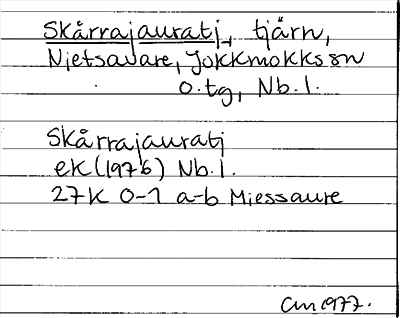 Skårrajauratj, tjärn,
Nietsavare, Jokkmokks sn
o. tg, Nb. l.
Skårrajauratj
ek (1976) Nb. l.
27K 0-1 a-b Miessaure
CM 1977.